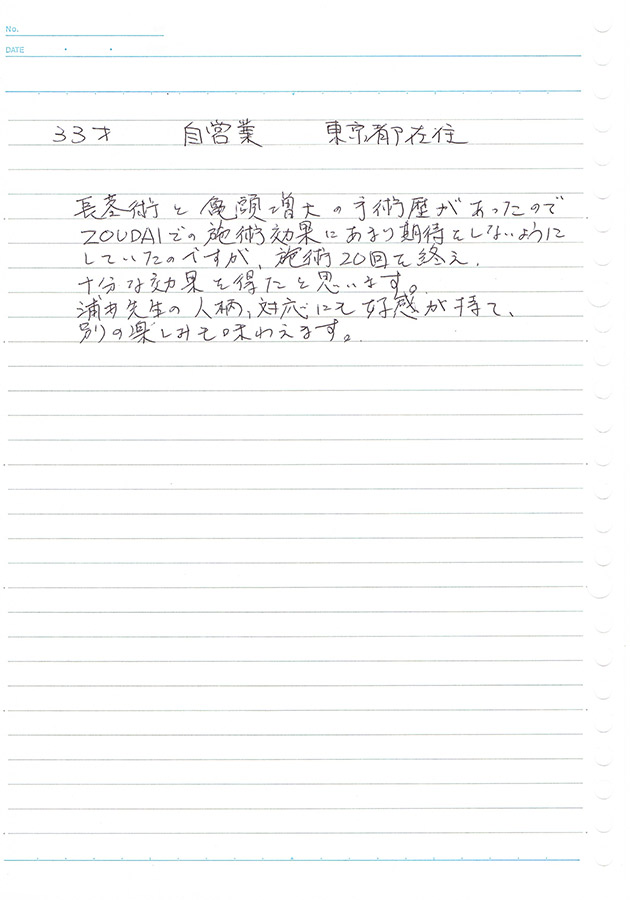 No.
DATE
33才 自営業 東京都在住
長茎術と亀頭増大の手術歴があったので
ZOUDAIでの施術効果にあまり期待をしないように
していたのですが、施術20回を終え、
十分な効果を得たと思います。
浦井先生の人柄、対応にも好感が持て、
別の楽しみも味わえます。